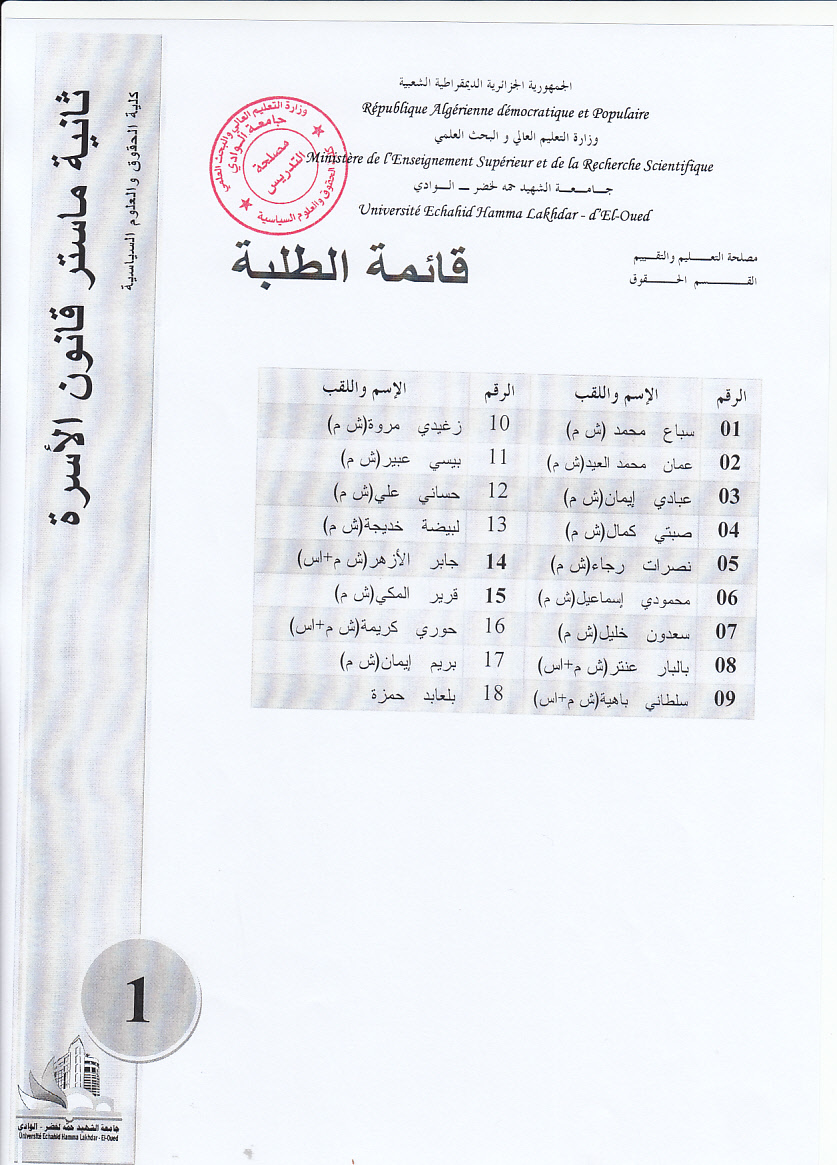 الجمهورية الجزائرية الديمقراطية الشعبية
République Algérienne démocratique et Populaire
وزارة التعليم العالي و البحث العلمي
Ministère de l'Enseignement Supérieur et de la Recherche Scientifique
جامعة الشهيد حمه لخضر – الوادي
Université Echahid Hamma Lakhdar - d'El-Oued
وزارة التعليم العالي والبحث العلمي
جامعة الوادي
مصلحة
التدريس
كلية الحقوق والعلوم السياسية
مصلحة التعليم والتقييم
القسم الحقوق
قائمة الطلبة
كلية الحقوق والعلوم السياسية
ثانية ماستر قانون الأسرة
الرقم الإسم واللقب الرقم الإسم واللقب
01 سباع محمد (ش م) 10 زغيدي مروة(ش م)
02 عمان محمد العيد(ش م) 11 بيسي عبير(ش م)
03 عبادي إيمان(ش م) 12 حساني علي(ش م)
04 صبتي كمال(ش م) 13 لبيضة خديجة(ش م)
05 نصرات رجاء(ش م) 14 جابر الأزهر(ش م+اس)
06 محمودي إسماعيل(ش م) 15 قرير المكي(ش م)
07 سعدون خليل(ش م) 16 حوري كريمة(ش م+اس)
08 بالبار عنتر(ش م+اس) 17 بريم إيمان(ش م)
09 سلطاني باهية(ش م+اس) 18 بلعابد حمزة
1
جامعة الشهيد حمّه لخضر - الوادي
Université Echahid Hamma Lakhdar - El-Oued